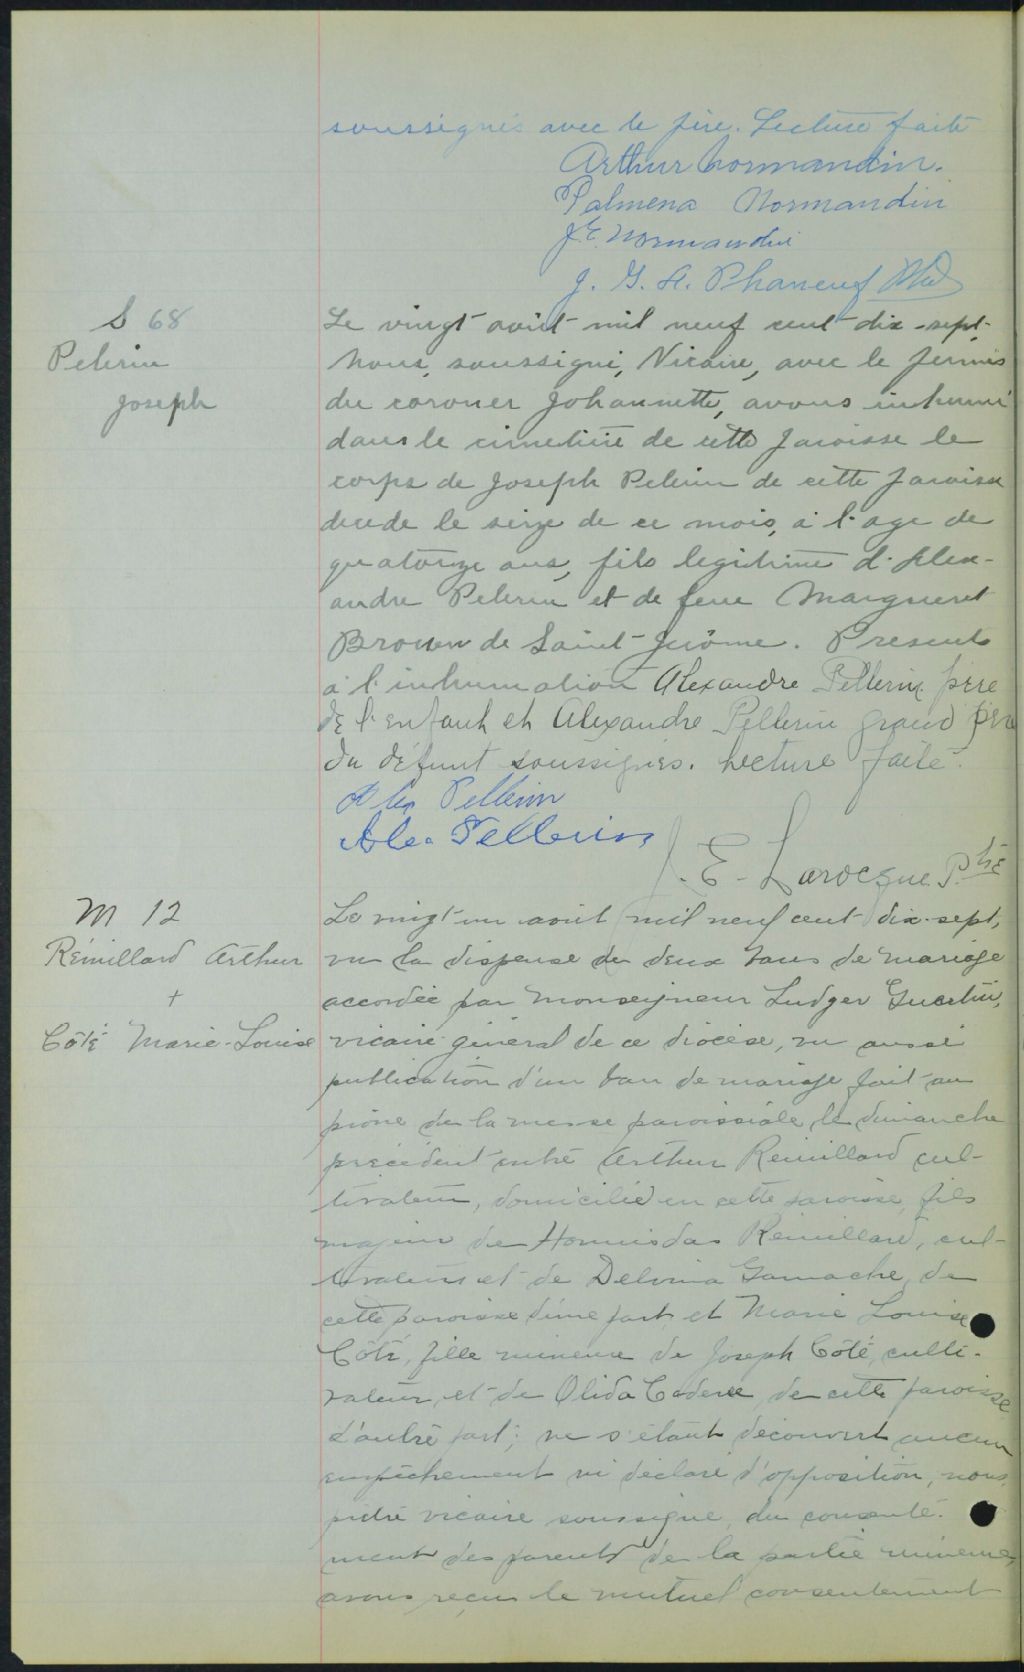 soussignés avec le père. Lecture faite
Arthur Normandin.
Palmena Normandin
J.E. Normandin
J. G. A. Phaneuf Ptre
S 68
Pelerin
Joseph
Le vingt août mil neuf cent dix-sept,
nous, soussigné, Vicaire, avec le permis
du coroner Johannette, avons inhumé
dans le cimetière de cette paroisse le
corps de Joseph Pelerin de cette paroisse
decede le seize de ce mois, a l'age de
quatorze ans, fils legitime d'Alex-
andre Pelerin et de feue Margueret
Brown de Saint-Jérôme. Presents
a l'inhumation Alexandre Pellerin père
de l'enfant et Alexandre Pellerin grand père
du défunt soussignés. Lecture faite.
Alex Pellerin
Alex Pellerin
J. E. Larocque Ptre
M 12
Rémillard Arthur
+
Côté Marie-Louise
Le vingt-un août mil neuf cent dix-sept,
vu la dispense de deux bans de mariage
accordée par Monseigneur Ludger Guertin,
vicaire général de ce diocèse, vu aussi
publication d'un ban de mariage fait au
prône de la messe paroissiale le dimanche
précédent entre Arthur Rémillard cul-
tivateur, domicilié en cette paroisse, fils
majeur de Hormisdas Rémillard, cul-
tivateur et de Delvina Gamache, de
cette paroisse d'une part, et Marie Louise
Côté, fille mineure de Joseph Côté, culti-
vateur, et de Olida Coderre, de cette paroisse
d'autre part; ne s'étant découvert aucun
empêchement ni déclaré d'opposition, nous,
prêtre vicaire soussigné, du consente-
ment des parents de la partie mineure,
avons reçu le mutuel consentement